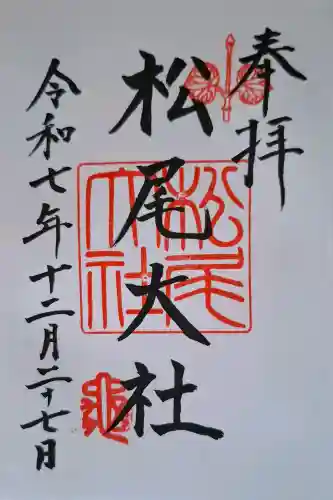 奉拝
松尾大社
松尾大社
令和七年十二月二十七日